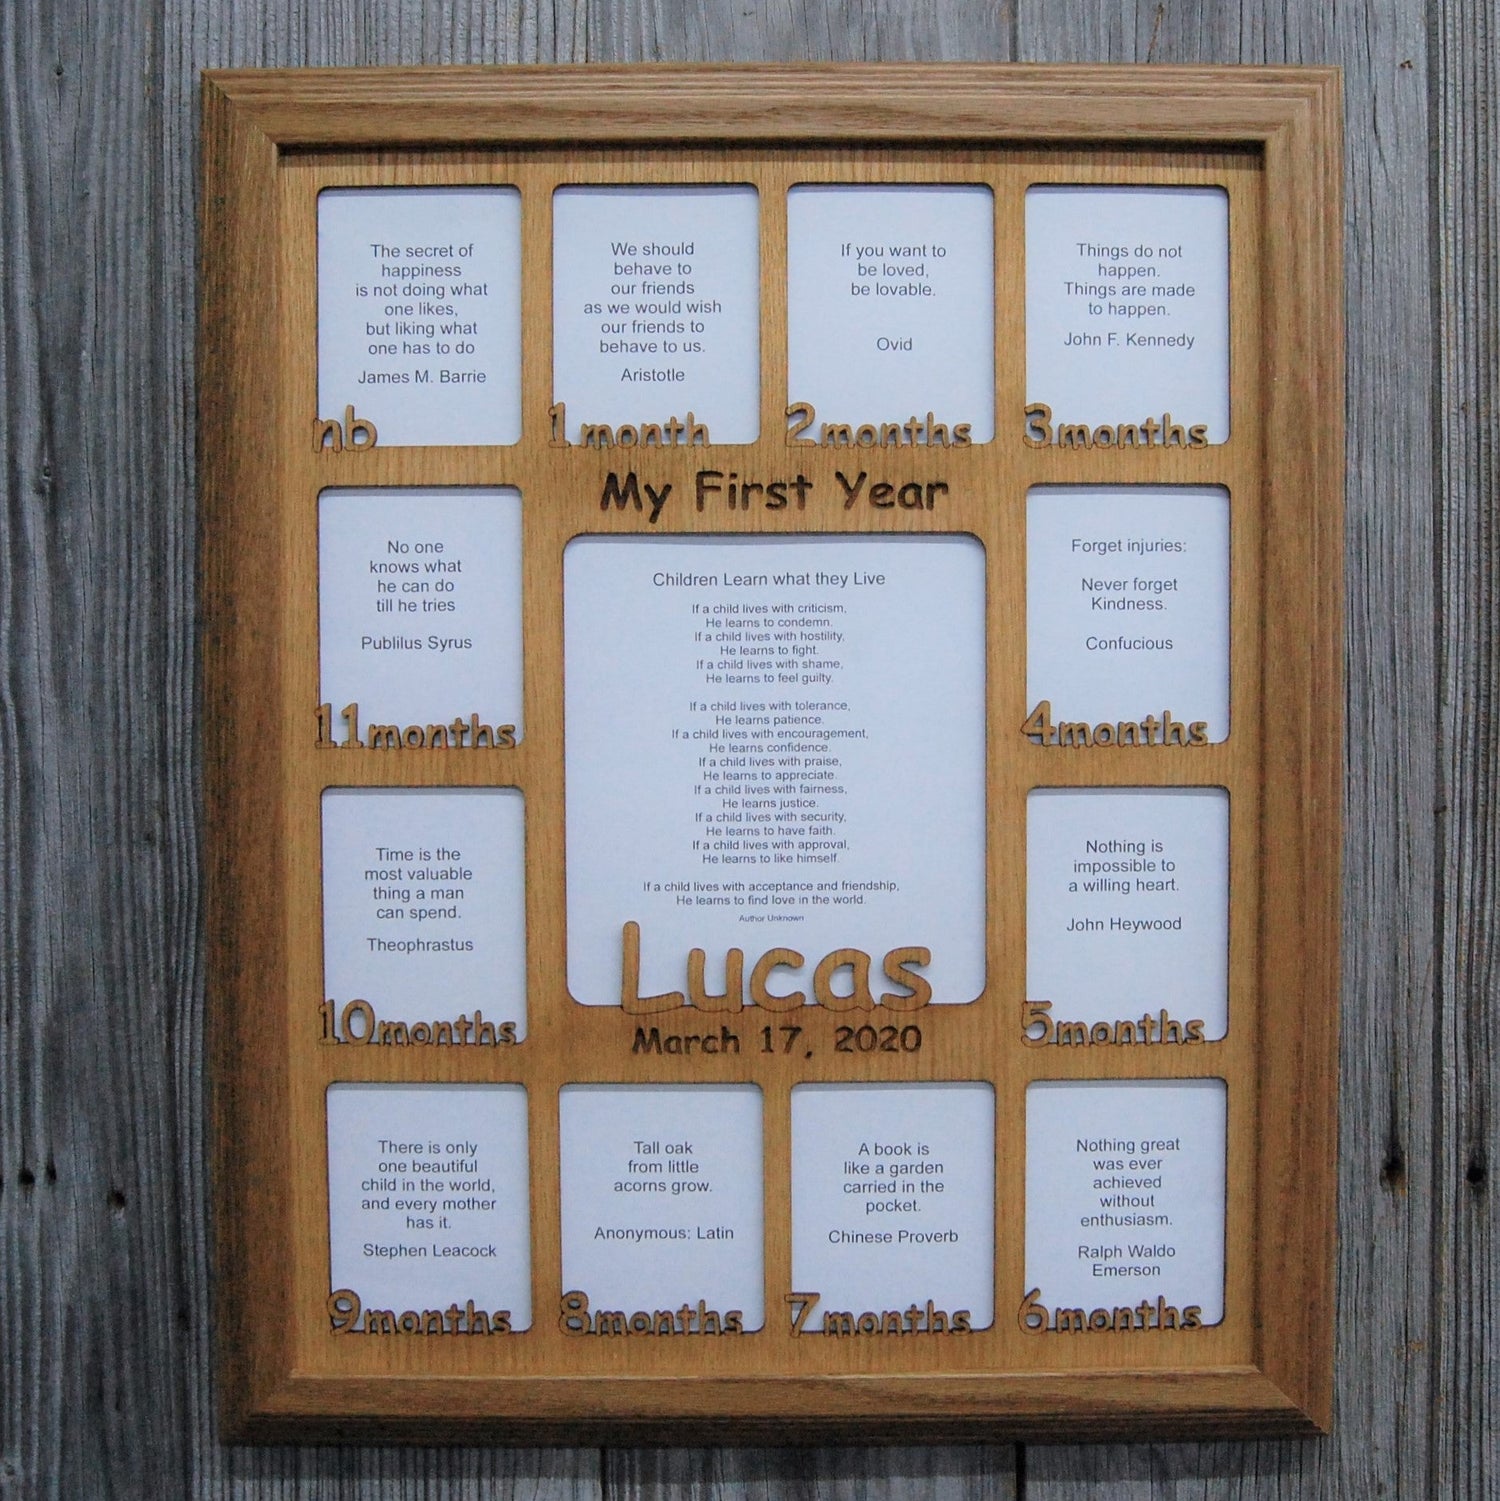 The secret of
happiness
is not doing what
one likes,
but liking what
one has to do
James M. Barrie
nb
We should
behave to
our friends
as we would wish
our friends to
behave to us.
Aristotle
1month
If you want to
be loved,
be lovable.
Ovid
2months
Things do not
happen.
Things are made
to happen.
John F. Kennedy
3months
My First Year
No one
knows what
he can do
till he tries
Publilus Syrus
11months
Children Learn what they Live
If a child lives with criticism,
He learns to condemn.
If a child lives with hostility,
He learns to fight.
If a child lives with shame,
He learns to feel guilty.
If a child lives with tolerance,
He learns patience.
If a child lives with encouragement,
He learns confidence.
If a child lives with praise,
He learns to appreciate.
If a child lives with fairness,
He learns justice.
If a child lives with security,
He learns to have faith.
If a child lives with approval,
He learns to like himself.
If a child lives with acceptance and friendship,
He learns to find love in the world.
Author Unknown
Lucas
March 17, 2020
Forget injuries:
Never forget
Kindness.
Confucious
4months
Time is the
most valuable
thing a man
can spend.
Theophrastus
10months
Nothing is
impossible to
a willing heart.
John Heywood
5months
There is only
one beautiful
child in the world,
and every mother
has it.
Stephen Leacock
9months
Tall oak
from little
acorns grow.
Anonymous: Latin
8months
A book is
like a garden
carried in the
pocket.
Chinese Proverb
7months
Nothing great
was ever
achieved
without
enthusiasm.
Ralph Waldo
Emerson
6months